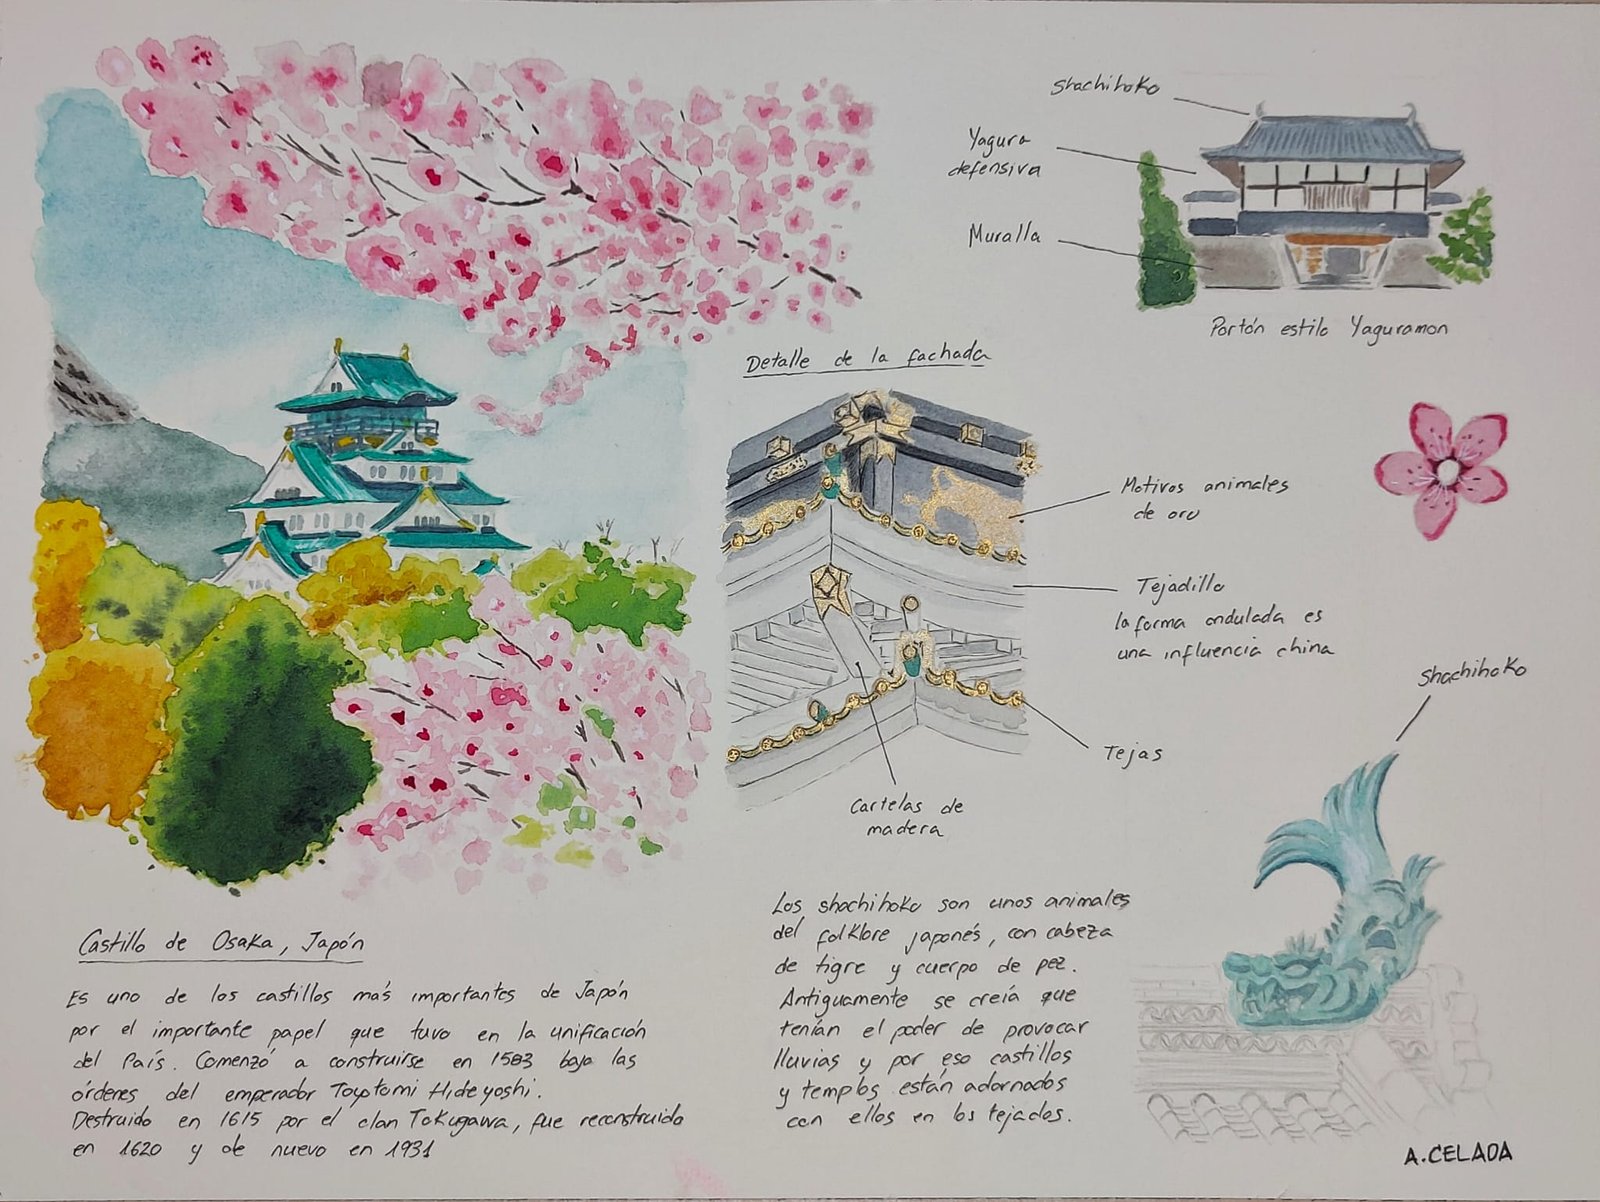 Shachihoko
Yagura
defensiva
Muralla
Portón estilo Yaguramon
Detalle de la fachada
Motivos animales
de oro
Tejadillo
la forma ondulada es
una influencia china
Tejas
Cartelas de
madera
Shachihoko
Castillo de Osaka, Japón
Es uno de los castillos más importantes de Japón
por el importante papel que tuvo en la unificación
del País. Comenzó a construirse en 1583 bajo las
órderes del emperador Toyotomi Hideyoshi.
Destruido en 1615 por el clan Tokugawa, fue reconstruido
en 1620 y de nuevo en 1931
Los shachihoko son unos animales
del folklore japonés, con cabeza
de tigre y cuerpo de pez.
Antiguamente se creía que
tenían el poder de provocar
lluvias y por eso castillos
y templos están adornados
con ellos en los tejados.
A.CELADA